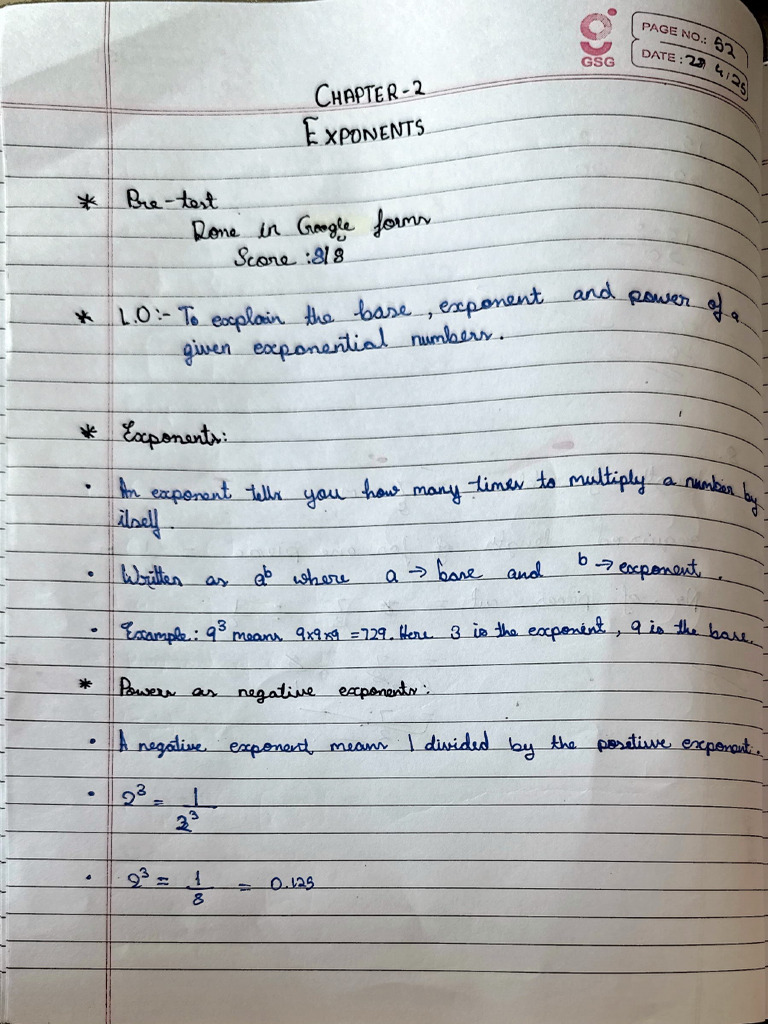 GSG
PAGE NO.: 52
DATE: 4/25
CHAPTER-2
EXPONENTS
* Pre-test
Done in Google forms
Score :8/8
* L.O:- To explain the base, exponent and power of a
given exponential numbers.
* Exponents:
• An exponent tells you how many times to multiply a number by
itself.
• Written as aᵇ where a → base and b → exponent.
• Example: 9³ means 9x9x9 = 729. Here 3 is the exponent, 9 is the base.
* Powers as negative exponents:
• A negative exponent means 1 divided by the positive exponent.
• 2³ = 1/2³
• 2³ = 1/8 = 0.125